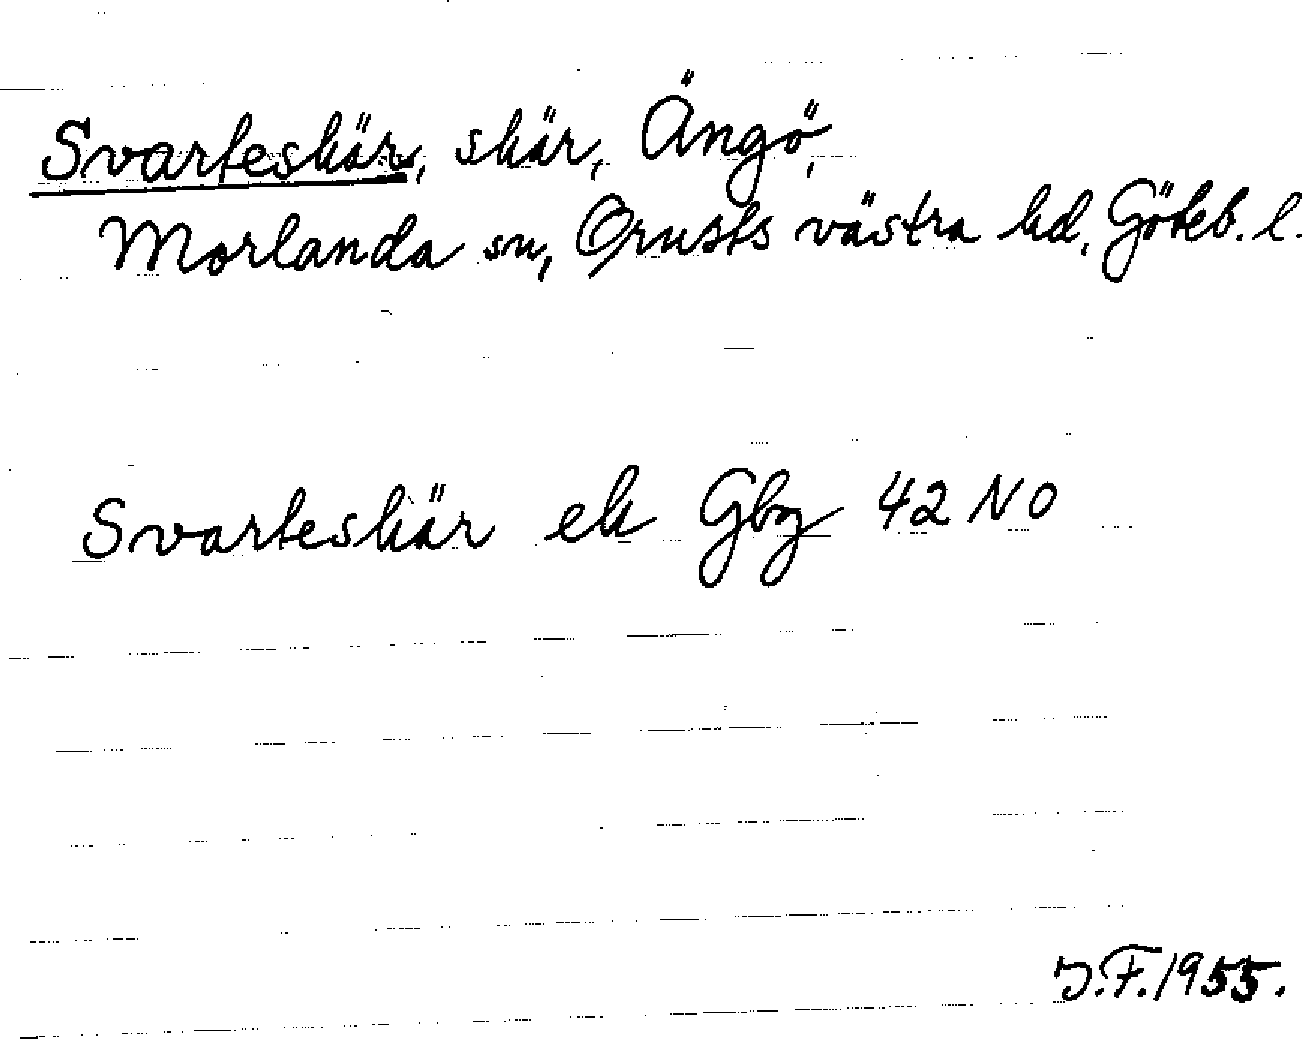 Svarteskär, skär, Ängö,
Morlanda sn, Orusts västra hd, Göteb. l.
Svarteskär ek Gbg 42 NO
J.F. 1955.